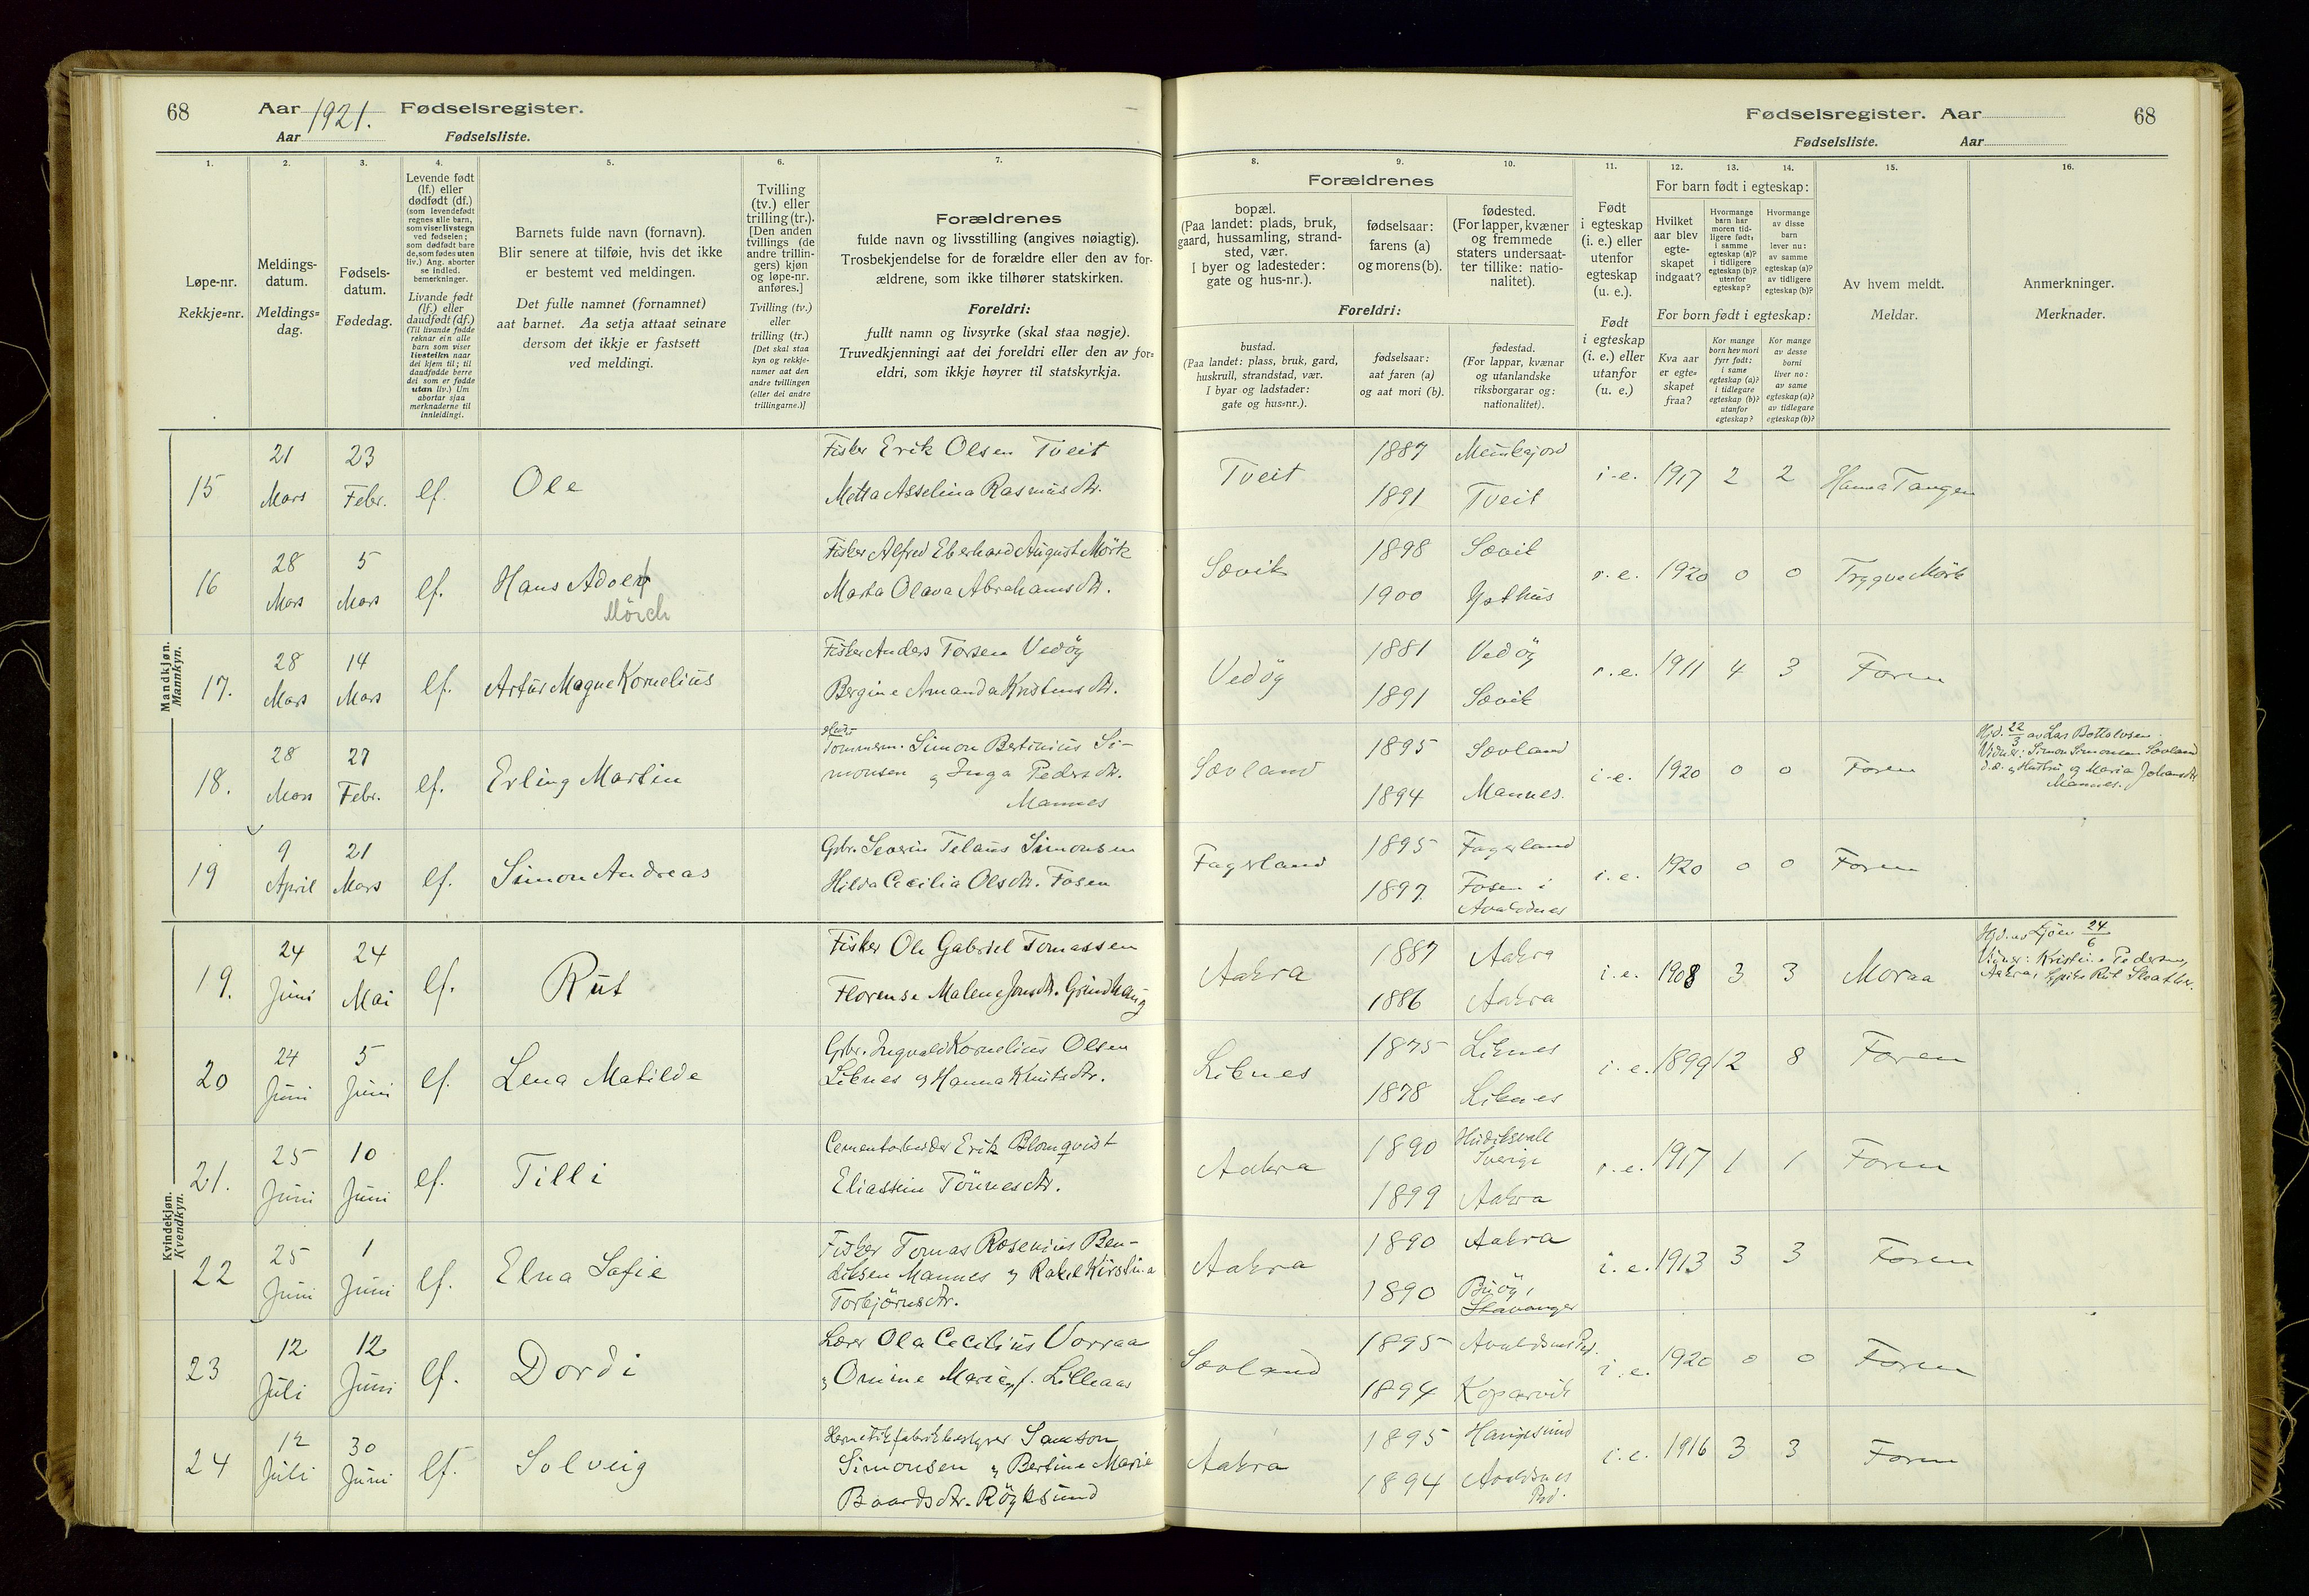 68 Aar 1921. Fødselsregister.
Aar Fødselsliste.
Fødselsregister. Aar 68
Fødselsliste. Aar
1.
Løpe-nr.
Rekkje=nr.
2.
Meldings-
datum.
Meldings=
dag.
3.
Fødsels-
datum.
Fødedag.
4.
Levende født
(lf.) eller
dødfødt (df.)
(som levendefødt
regnes alle barn,
som viser livstegn
ved fødselen;
som dødfødt bare
de, som fødes uten
liv.) Ang. aborter
se indled.
bemerkninger.
Livande født
(lf.) eller
daudfødt (df.)
(Til livande fødde
reknar ein alle
barn som viser
livsteikn naar
dei kjem til; til
daudfødde berre
dei som er fødde
utan liv.) Um
abortar sjaa
merknaderne til
innleidingi.
5.
Barnets fulde navn (fornavn).
Blir senere at tilføie, hvis det ikke
er bestemt ved meldingen.
Det fulle namnet (fornamnet)
aat barnet. Aa setja attaat seinare
dersom det ikkje er fastsett
ved meldingi.
6.
Tvilling
(tv.) eller
trilling (tr.).
[Den anden
tvillings (de
andre trillin-
gers) kjøn
og løpe-nr.
anføres.]
Tvilling (tv.)
eller
trilling (tr.)
[Det skal staa
kyn og rekkje-
numer aat den
andre tvillingen
(eller dei andre
trillingarne.)]
7.
Forældrenes
fulde navn og livsstilling (angives nøiagtig).
Trosbekjendelse for de forældre eller den av for-
ældrene, som ikke tilhører statskirken.
Foreldri:
fullt namn og livsyrke (skal staa nøgje).
Truvedkjenningi aat dei foreldri eller den av for=
eldri, som ikkje høyrer til statskyrkja.
Forældrenes
8.
bopæl.
(Paa landet: plads, bruk,
gaard, hussamling, strand-
sted, vær.
I byer og ladesteder:
gate og hus-nr.).
9.
fødselsaar:
farens (a)
og morens (b).
10.
fødested.
(For lapper, kvæner
og fremmede
staters undersaat-
ter tillike: natio-
nalitet).
Foreldri:
bustad.
(Paa landet: plass, bruk, gard,
huskrull, strandstad, vær.
I byar og ladstader:
gate og hus=nr.).
fødselsaar:
aat faren (a)
og aat mori (b).
fødestad.
(For lappar, kvænar
og utanlandske
riksborgarar og:
nationalitet).
11.
Født
i egteskap
(i. e.) eller
utenfor
egteskap
(u. e.).
Født
i egteskap
(i. e.) eller
utanfor
(u. e.)
For barn født i egteskap:
12.
Hvilket
aar blev
egte-
skapet
indgaat?
13.
Hvormange
barn har
moren tid-
ligere født:
i samme
egteskap (a)?
i tidligere
egteskap (b)?
utenfor
egteskap?
14.
Hvormange
av disse
barn
lever nu:
av samme
egteskap (a)?
av tidligere
egteskap (b)?
For born født i egteskap:
Kva aar
er egte=
skapet
fraa?
Kor mange
born hev mori
fyrr født:
i same
egteskap (a)?
i tidlegare
egteskap (b)?
utanfor
egteskap?
Kor mange
av desse
borni
liver no:
av same
egteskap (a)?
av tidlegare
egteskap (b)?
15.
Av hvem meldt.
Meldar.
16.
Anmerkninger.
Merknader.
Mandkjøn.
Mannkyn.
15 21 Mars 23 Febr. lf. Ole
Fisker Erik Olsen Tveit
Metta Asselina Rasmusdtr.
Tveit 1887 1891 Tveit i.e. 1917 2 2 Hanna Tangen
16 28 Mars 5 Mars lf. Hans Adolf
Mörch
Fisker Alfred Eberhard August Mörk
Marta Olava Abrahamsdtr.
Sævik 1898 Sævik 1900 i.e. 1920 0 0 Trygve Mörk
17. 28 Mars 14 Mars lf. Artur Magne Kornelius
Fisker Anders Torsen Vedöy
Bergine Amanda Kristensdtr.
Vedöy 1881 Vedöy 1891 Sævik i.e. 1911 4 3 Faren
18. 28 Mars 27 Febr. lf. Erling Martin
Tömmerm. Simon Bertinius Si-
monsen og Inga Pedersdtr.
Mannes
Sævland 1895 Sævland 1894 Mannes. i.e. 1920 0 0 Faren
Hjd. 22/3 av Lars Bottolvsen.
Vidner: Simon Simonsen Sævland
d.æ. og Hustru og Maria Johansdtr
Mannes.
19 9 April 21 Mars lf. Simon Andreas
Gbr. Severin Telaus Simonsen
Hilda Cecilia Olsdtr. Fosen
Fagerland 1895 Fagerland 1897 Fosen i
Avaldsnes
i.e. 1920 0 0 Faren
Kvindekjøn.
Kvendkyn.
19. 24 Juni 24 Mai lf. Rut
Fisker Ole Gabriel Tomassen
Florense Malene Jonsdtr. Grindhaug
Aakra 1887 Aakra 1886 Aakra i.e. 1908 3 3 Moraa
Hjd. av 24/6
Vidner: Kristine Pedersen,
Aakra,
20 24 Juni 5 Juni lf. Lena Matilde
Gbr. Ingvald Kornelius Olsen
Liknes og Hanna Knutsdtr.
Liknes 1875 Liknes 1878 Liknes i.e. 1899 12 8 Faren
21. 25 Juni 10 Juni lf. Tilli
Cementarbeider Erik Blomqvist
Eliassine Tönnesdtr.
Aakra 1890 Hudiksvall
Sverige
1899 Aakra i.e. 1917 1 1 Faren
22 25 Juni 1 Juni lf. Elna Sofie
Fisker Tomas Rosenius Ben-
diksen Mannes og Rakel Kirstina
Torbjörnsdtr.
Aakra 1890 Aakra 1890 Buöy,
Stavanger
i.e. 1913 3 3 Faren
23 12 Juli 12 Juni lf. Dordi
Lærer Ola Cecilius Vorraa
og Omine Marie f. Lillaas
Sævland 1895 1894 Kopervik i.e. 1920 0 0 Faren
24 12 Juli 30 Juni lf. Solveig
Hermetikfabrikbestyrer Samson
Simonsen og Bertine Marie
Baardsdtr. Röyksund
Aakra 1895 Haugesund 1894 Avaldsnes
i.e. 1916 3 3 Faren